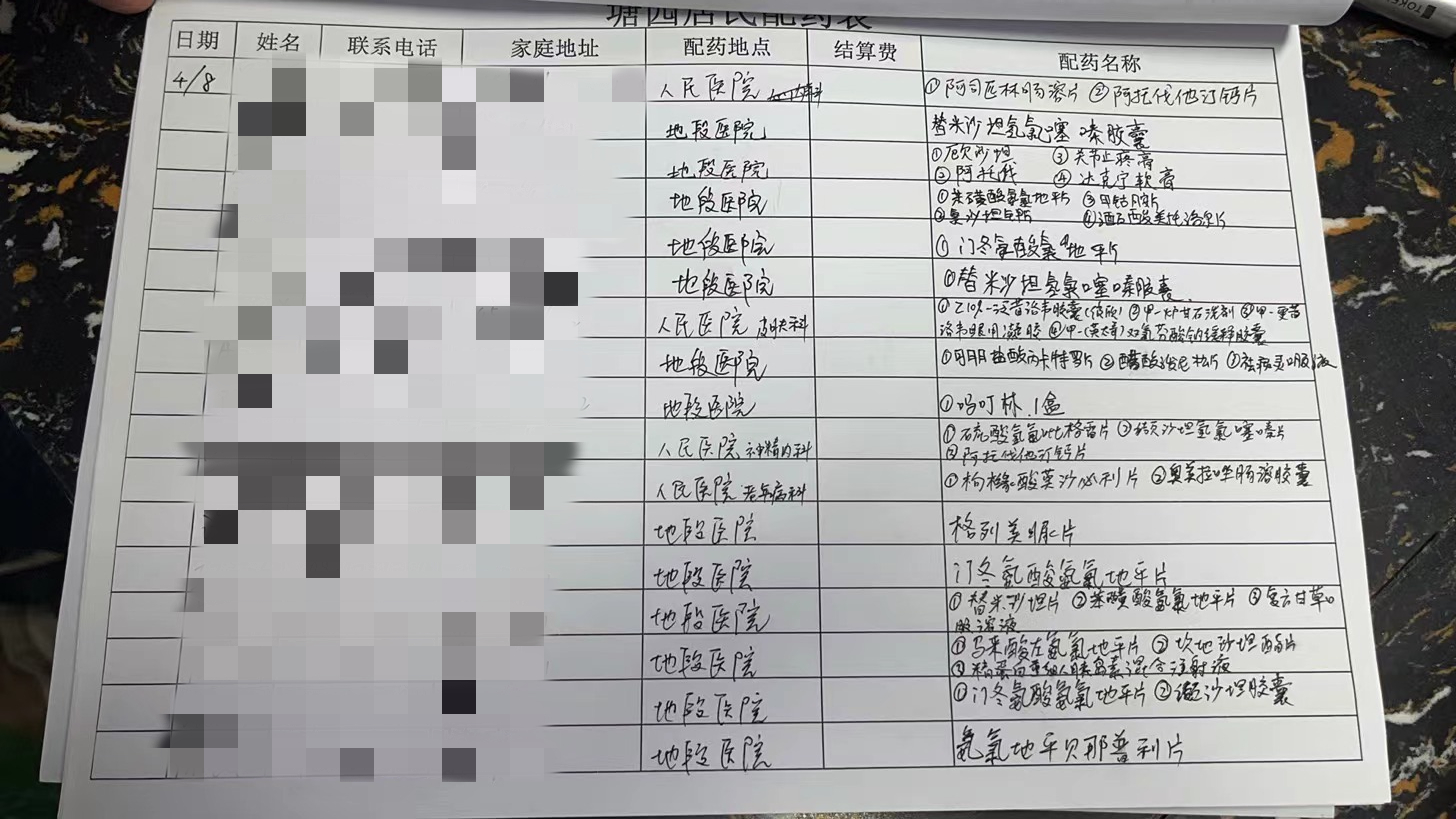 塘西居民配药表
日期 姓名 联系电话 家庭地址 配药地点 结算费 配药名称
4/8 人民医院 ①阿司匹林肠溶片 ②阿托伐他汀钙片
地段医院 替米沙坦氢氯噻嗪胶囊
地段医院 ①厄贝沙坦 ③关节止疼膏
②阿托伐 ④达克宁软膏
地段医院 ①苯磺酸氨氯地平片 ③甲钴胺片
②氯沙坦钾 ④酒石酸美托洛尔片
地段医院 ①门冬氨酸氨氯地平片
地段医院 ①替米沙坦氢氯噻嗪胶囊
人民医院 皮肤科 ①乙 泛昔洛韦胶囊 ②甲-炉甘石洗剂 ③甲-更昔
洛韦眼用凝胶 ④甲-(英太青)双氯芬酸钠缓释胶囊
地段医院 ①盐酸丙卡特罗片 ②醋酸泼尼松片 ③口服液
地段医院 ①吗叮林.1盒
人民医院 神精内科 ①硫酸氢氯吡格雷片 ②缬沙坦氢氯噻嗪片
③阿托伐他汀钙片
人民医院 老年病科 ①枸橼酸莫沙必利片 ②奥美拉唑肠溶胶囊
地段医院 格列美脲片
地段医院 门冬氨酸氨氯地平片
地段医院 ①替米沙坦片 ②苯磺酸氨氯地平片 ③复方甘草口
服溶液
地段医院 ①马来酸左氨氯地平片 ②坎地沙坦酯片
③精蛋白重组人胰岛素混合注射液
地段医院 ①门冬氨酸氨氯地平片 ②缬沙坦胶囊
地段医院 氨氯地平贝那普利片